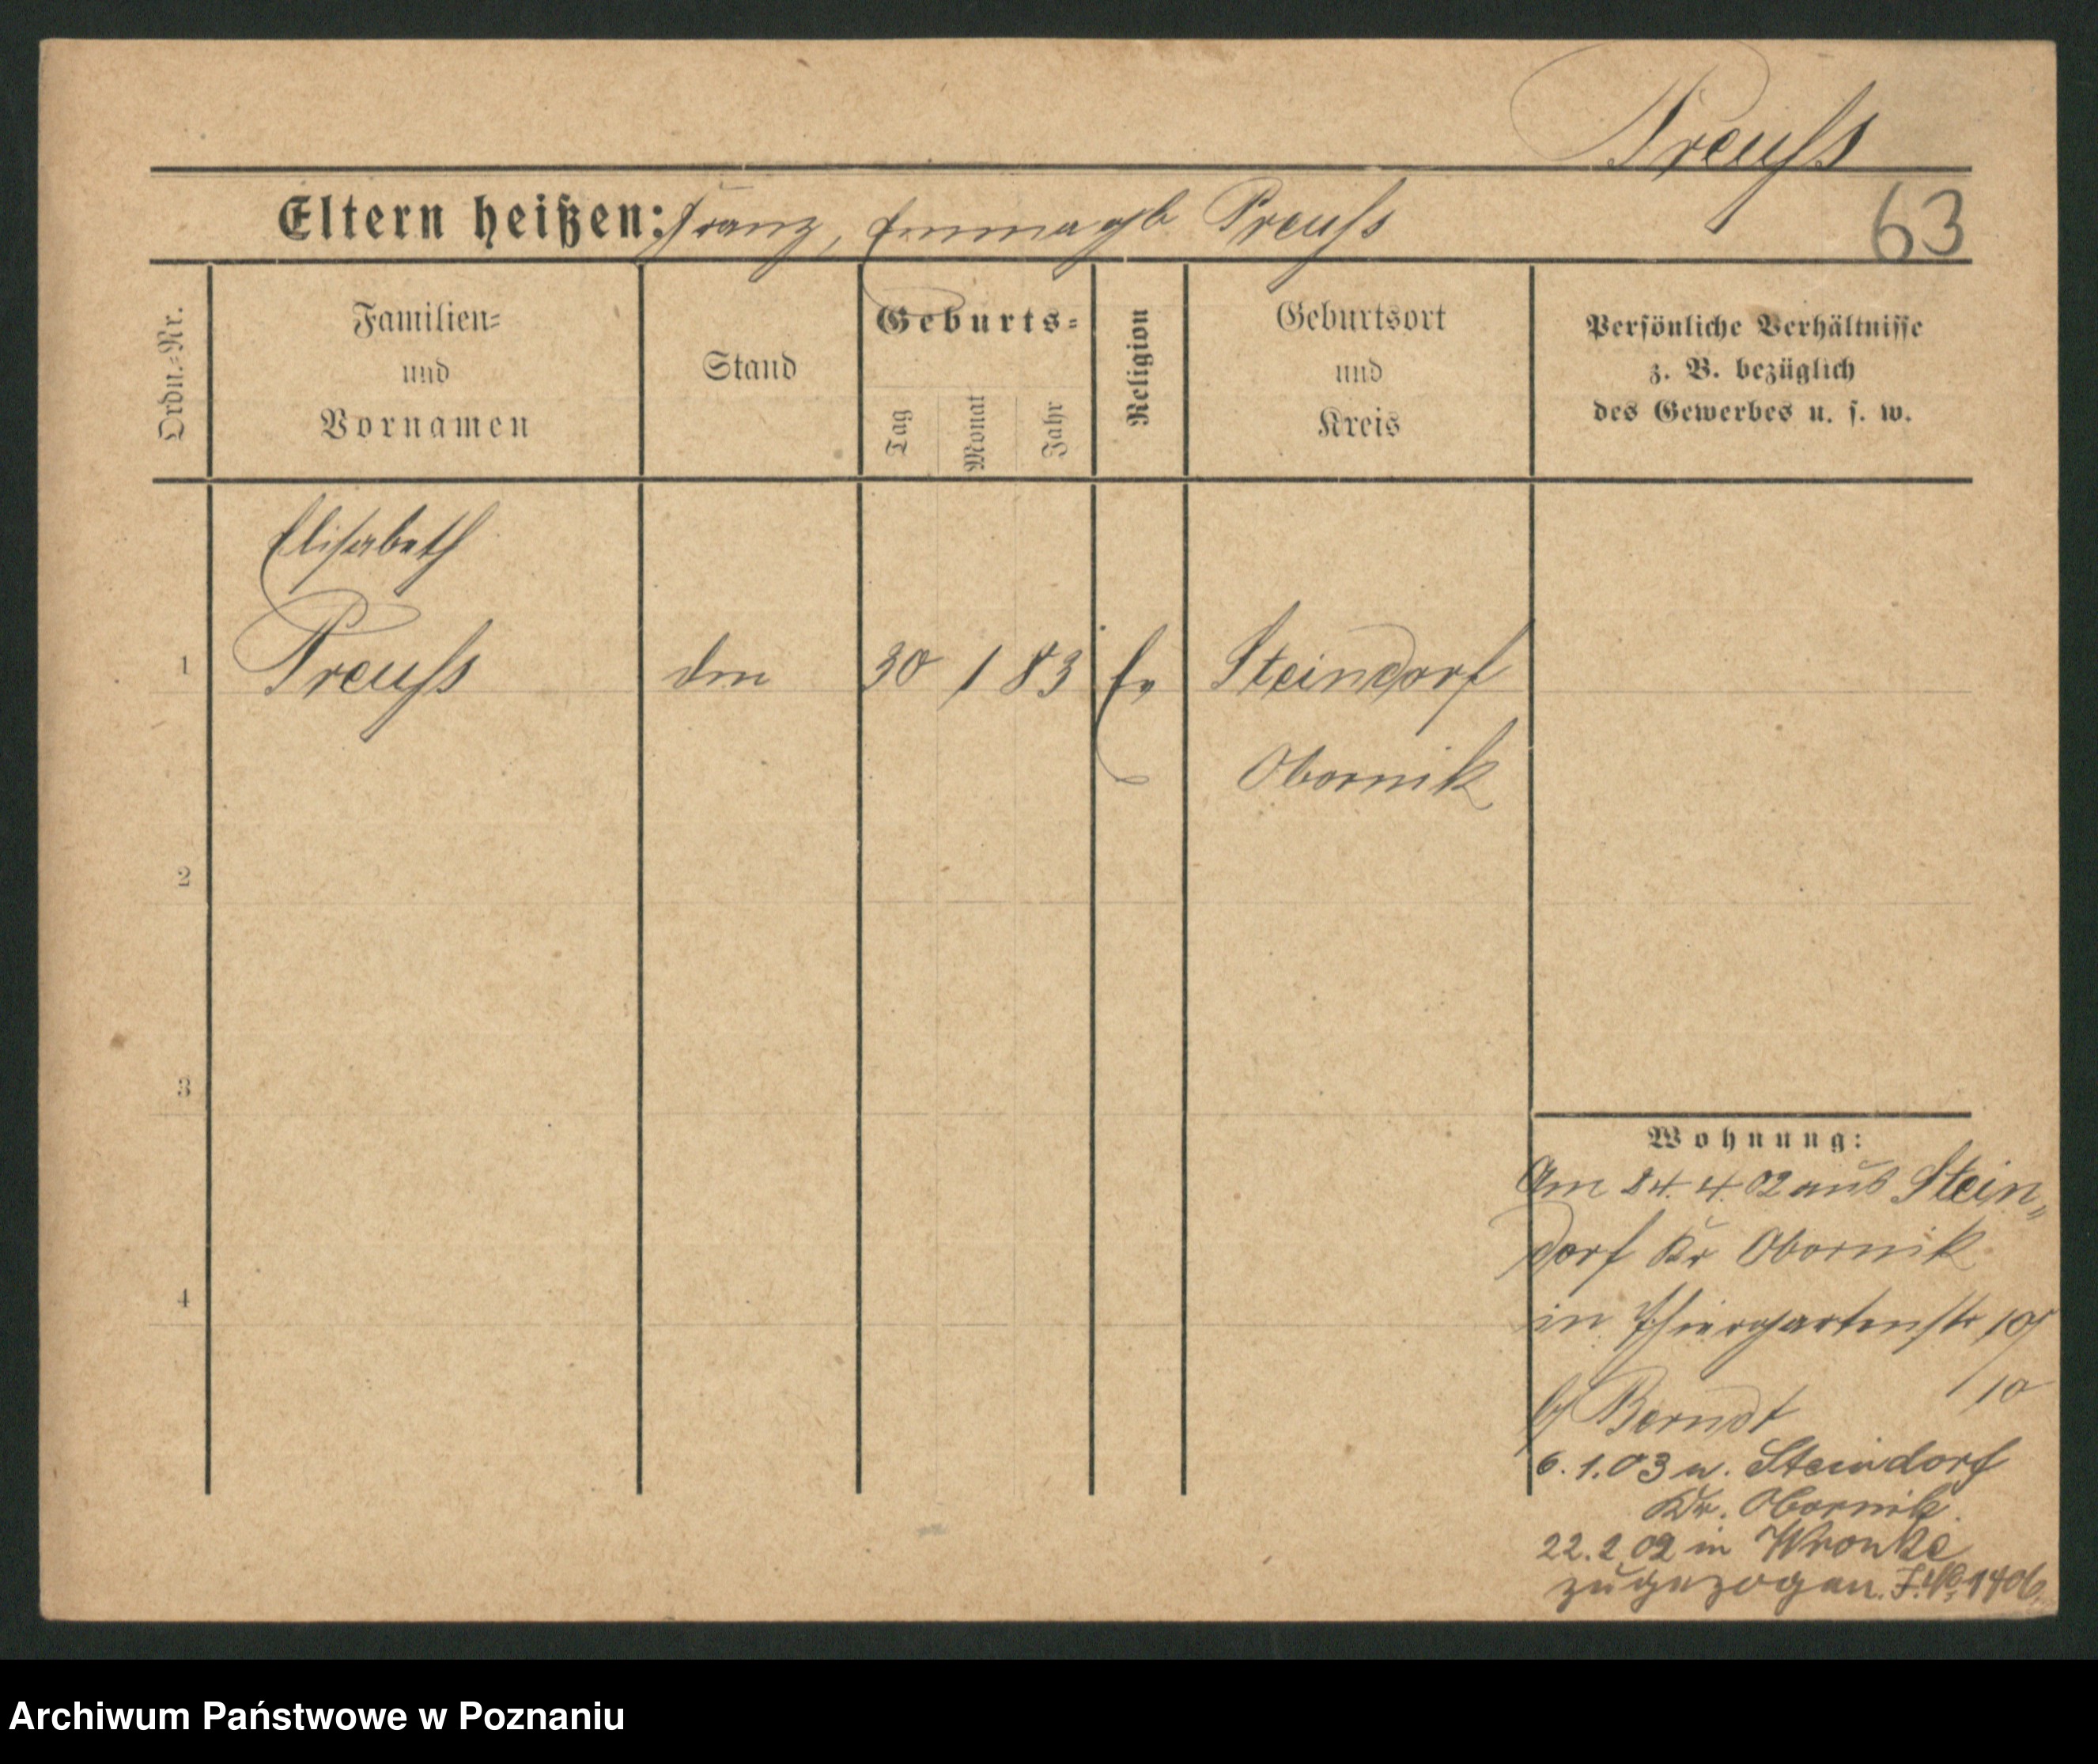 Preuß
Eltern heißen: Franz, Emma geb Preuß
63
Ordn.-Nr.
Familien-
und
Vornamen
Stand
Geburts-
Tag
Monat
Jahr
Religion
Geburtsort
und
Kreis
Persönliche Verhältnisse
z. B. bezüglich
des Gewerbes u. s. w.
Elisabeth
1 Preuß 30 1 83 Ev Steindorf
Obornik
2
3
Wohnung:
Am 24. 4 02 aus Stein„
dorf Kr Obornik
4
in Thiergartenstr
10
b/ Berndt
6. 1. 03 n. Steindorf
Kr. Obornik.
22. 2 02 in Wronke
zugezogen.
Archiwum Państwowe w Poznaniu